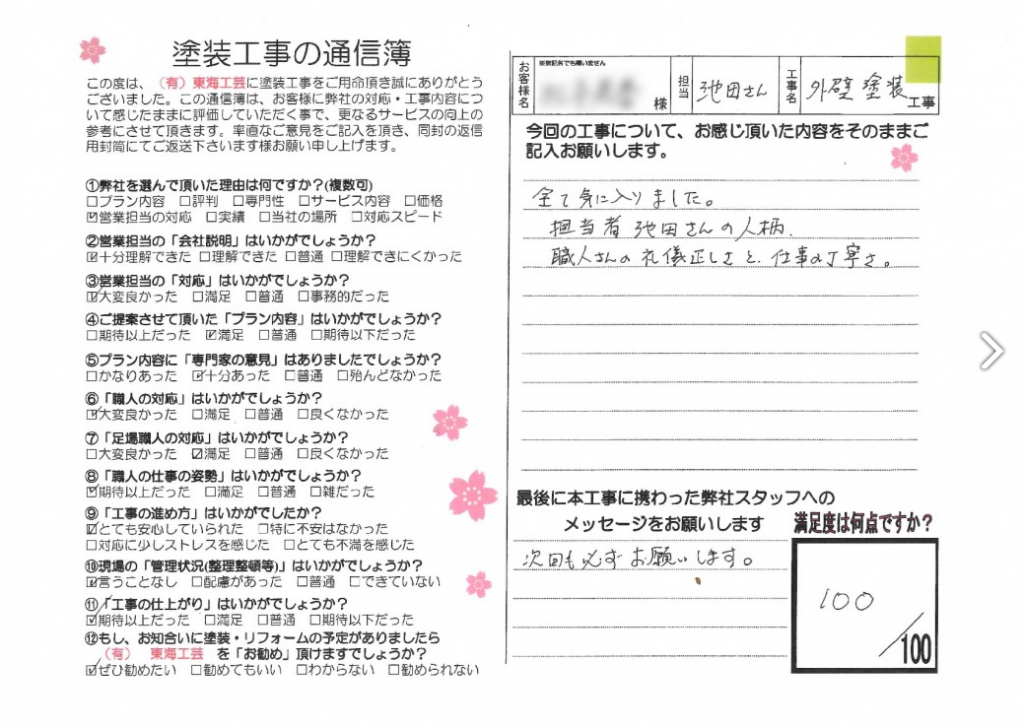 塗装工事の通信簿
この度は、(有)東海工芸に塗装工事をご用命頂き誠にありがとう
ございました。この通信簿は、お客様に弊社の対応・工事内容につ
いて感じたままに評価していただく事で、更なるサービスの向上の
参考にさせて頂きます。率直なご意見をご記入を頂き、同封の返信
用封筒にてご返送下さいます様お願い申し上げます。
①弊社を選んで頂いた理由は何ですか?(複数可)
□プラン内容 □評判 □専門性 □サービス内容 □価格
☑営業担当の対応 □実績 □当社の場所 □対応スピード
②営業担当の「会社説明」はいかがでしょうか?
☑十分理解できた □理解できた □普通 □理解できにくかった
③営業担当の「対応」はいかがでしょうか?
☑大変良かった □満足 □普通 □事務的だった
④ご提案させて頂いた「プラン内容」はいかがでしょうか?
□期待以上だった ☑満足 □普通 □期待以下だった
⑤プラン内容に「専門家の意見」はありましたでしょうか?
□かなりあった ☑十分あった □普通 □殆んどなかった
⑥「職人の対応」はいかがでしょうか?
☑大変良かった □満足 □普通 □良くなかった
⑦「足場職人の対応」はいかがでしょうか?
□大変良かった ☑満足 □普通 □良くなかった
⑧「職人の仕事の姿勢」はいかがでしょうか?
☑期待以上だった □満足 □普通 □雑だった
⑨「工事の進め方」はいかがでしたか?
☑とても安心していられた □特に不安はなかった
□対応に少しストレスを感じた □とても不満を感じた
⑩現場の「管理状況(整理整頓等)」はいかがでしょうか?
☑言うことなし □配慮があった □普通 □できていない
⑪「工事の仕上がり」はいかがでしょうか?
☑期待以上だった □満足 □普通 □期待以下だった
⑫もし、お知合いに塗装・リフォームの予定がありましたら
(有) 東海工芸 を「お勧め」頂けますでしょうか?
☑ぜひ勧めたい □勧めてもいい □わからない □勧められない
お客様名 ※無記名でも構いません 様 担当 池田さん 工事名 外壁塗装 工事
今回の工事について、お感じ頂いた内容をそのままご
記入お願いします。
全て気に入りました。
担当者 池田さんの人柄.
職人さんの礼儀正しさと.仕事の丁寧さ。
最後に本工事に携わった弊社スタッフへの
メッセージをお願いします
次回も必ずお願いします。
満足度は何点ですか?
100
/100